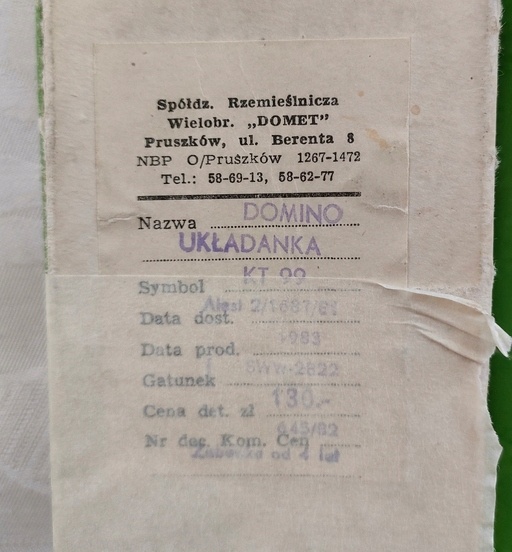 Spółdz. Rzemieślnicza
Wielobr. „DOMET”
Pruszków, ul. Berenta 8
NBP O/Pruszków 1267-1472
Tel.: 58-69-13, 58-62-77
Nazwa DOMINO
UKŁADANKA
Symbol KT 99
Data dost.
Data prod. 1983
Gatunek SWW-2822
Cena det. zł 130.-
Nr dec. Kom. Cen 645/82
Zabawka od 4 lat